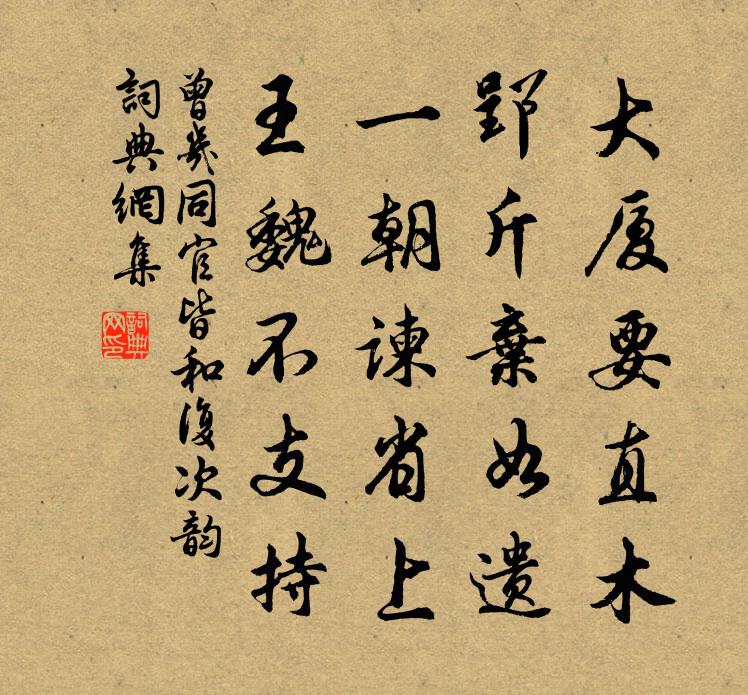 大厦要直木
郢斤棄如遗
一朝諫省上
王魏不支持
曾幾同官皆和復次韵
詞典網集
詞典网印